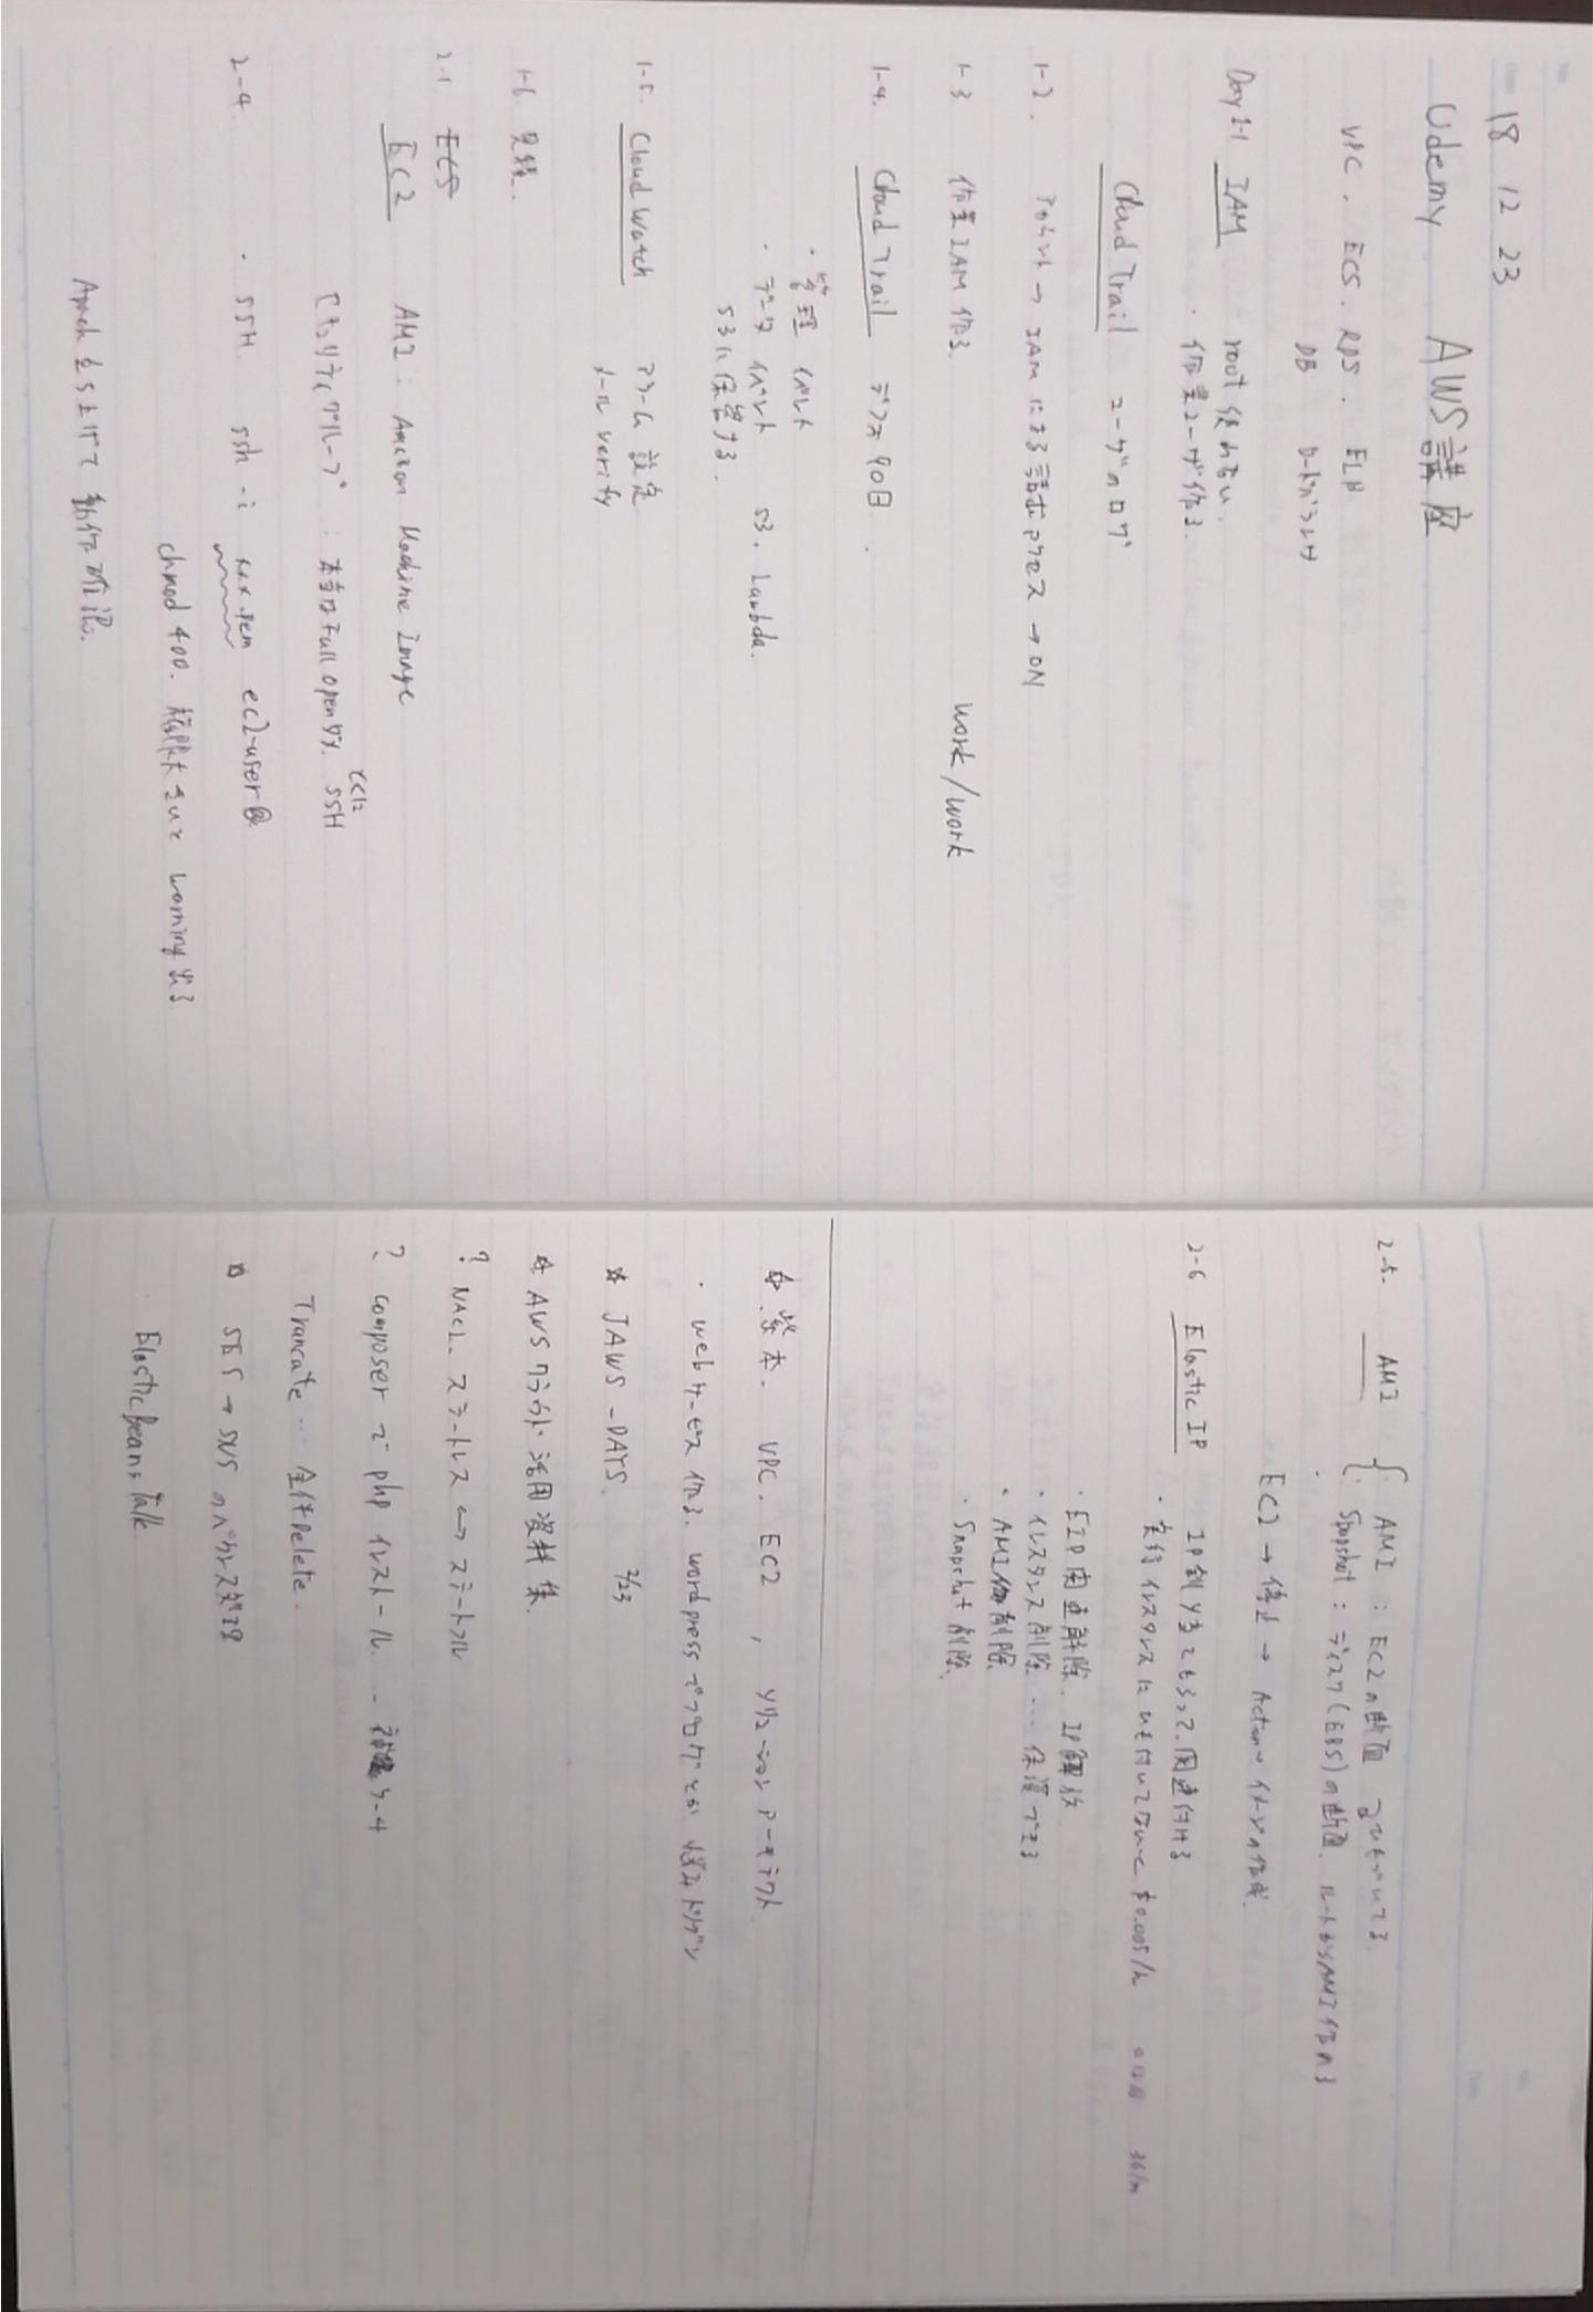 18 12 23
Udemy AWS講座
VPC. ECS. RDS. ELB
DB ロードバランサ
Day1-1 IAM root 使わない.
・作業ユーザ作る.
Cloud Trail ユーザのログ
1-2. アカウント → IAM による請求アクセス → ON
1-3 作業IAM 作る. work/work
1-4. Cloud Trail デフォ 90日.
・管理イベント
・データイベント S3. Lambda.
S3に保管する.
1-5. Cloud Watch アラーム 設定
メール verify
1-6.
2-1 ECS
EC2 AMI : Amazon Machine Image
セキュリティグループ : 本当はFull openダメ. SSH
2-4. ・SSH. ssh -i xxx.pem ec2-user@
chmod 400. ないと warning 出る
Apach 立ち上げて 動作確認.
2-5. AMI { AMI : EC2の断面
Snapshot : ディスク(EBS)の断面. ルートならAMI作れる
EC2 → 停止 → Action イメージの作成.
2-6 Elastic IP IP割り当ててもらって. 関連付ける
・実行インスタンスにひも付いてないと $0.005/h
・EIP 関連解除. IP解放
・インスタンス削除 … 保護できる
・AMI 削除
・Snapshot 削除.
☆ 紫本. VPC. EC2 , ソリューションアーキテクト
・webサービス作る. wordpressでブログとか 独自ドメイン
☆ JAWS-DAYS. 2/23
☆ AWSクラウド活用資料集.
? NACL. ステートレス ⇔ ステートフル
? composer で php インストール.
Trancate … 全件Delete.
SES → SNS のバウンス処理
ElasticBeansTalk